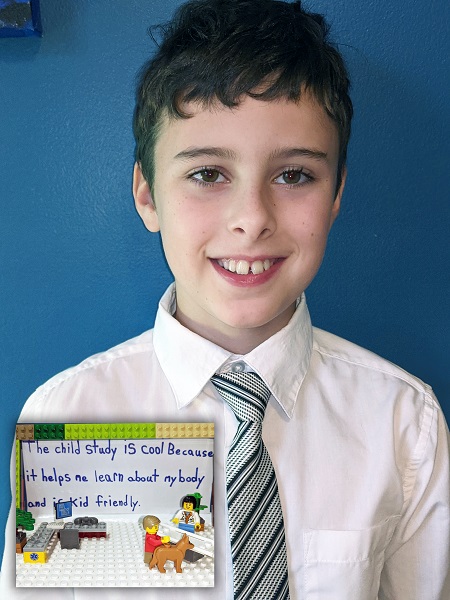 The child study IS cool Because
it helps me learn about my body
and is kid friendly.